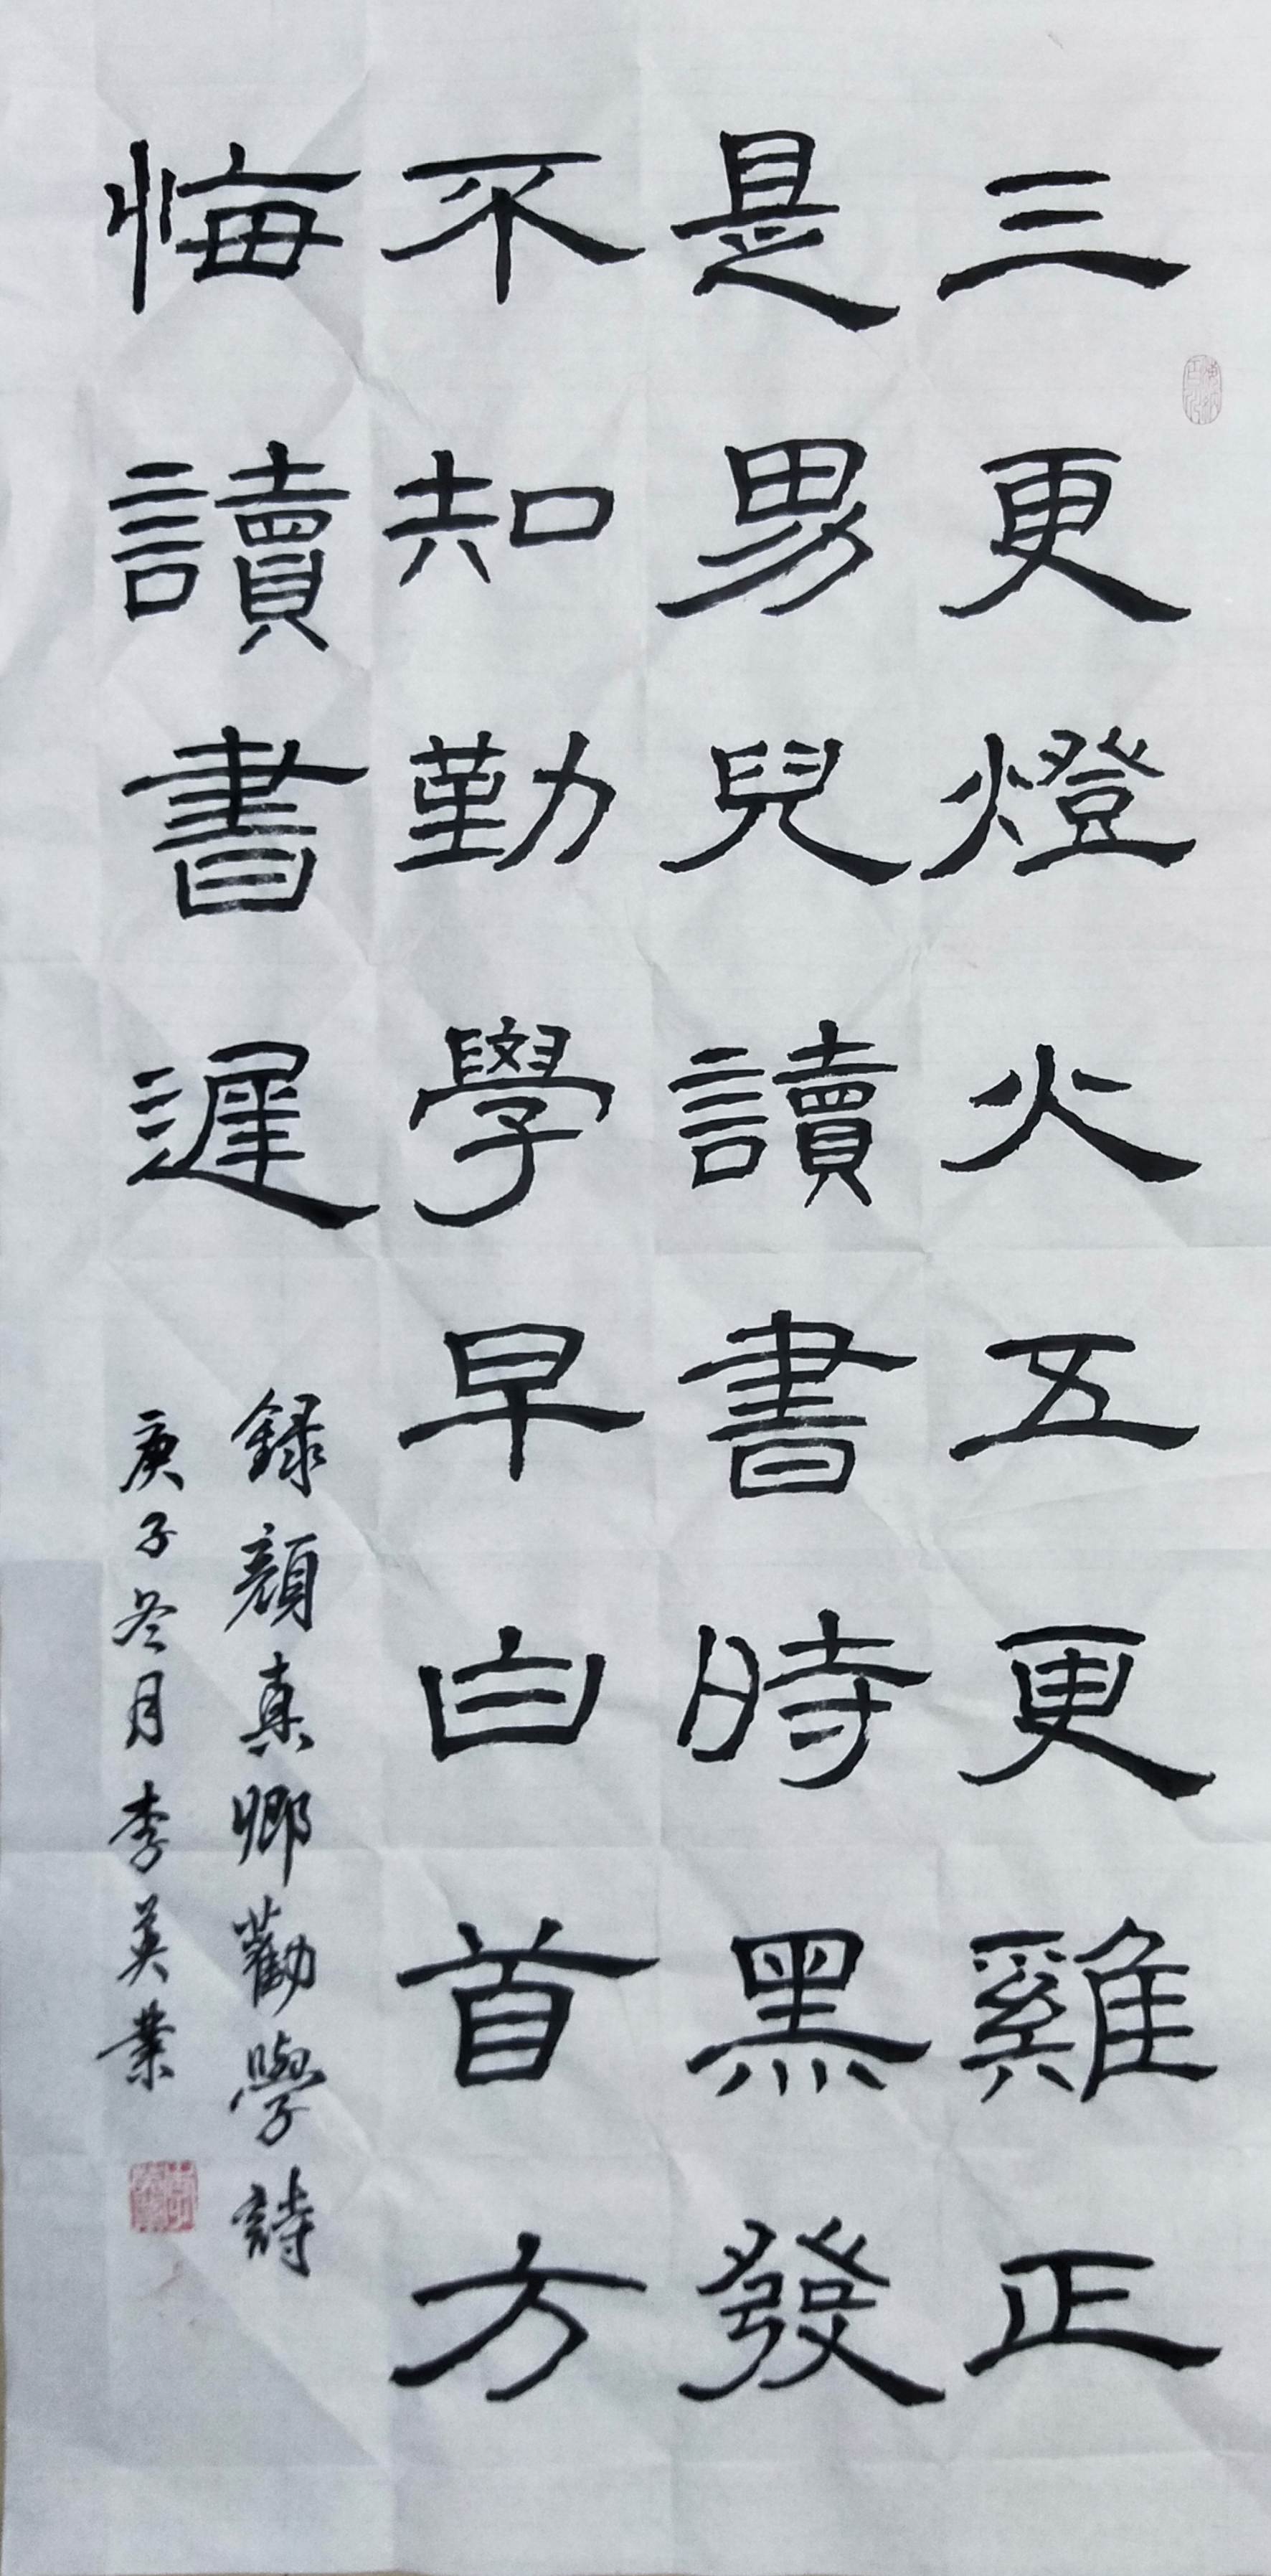 三更燈火五更雞正
是男兒讀書時黑發
不知勤學早白首方
悔讀書遲
録顔真卿勸學詩
庚子冬月李英業